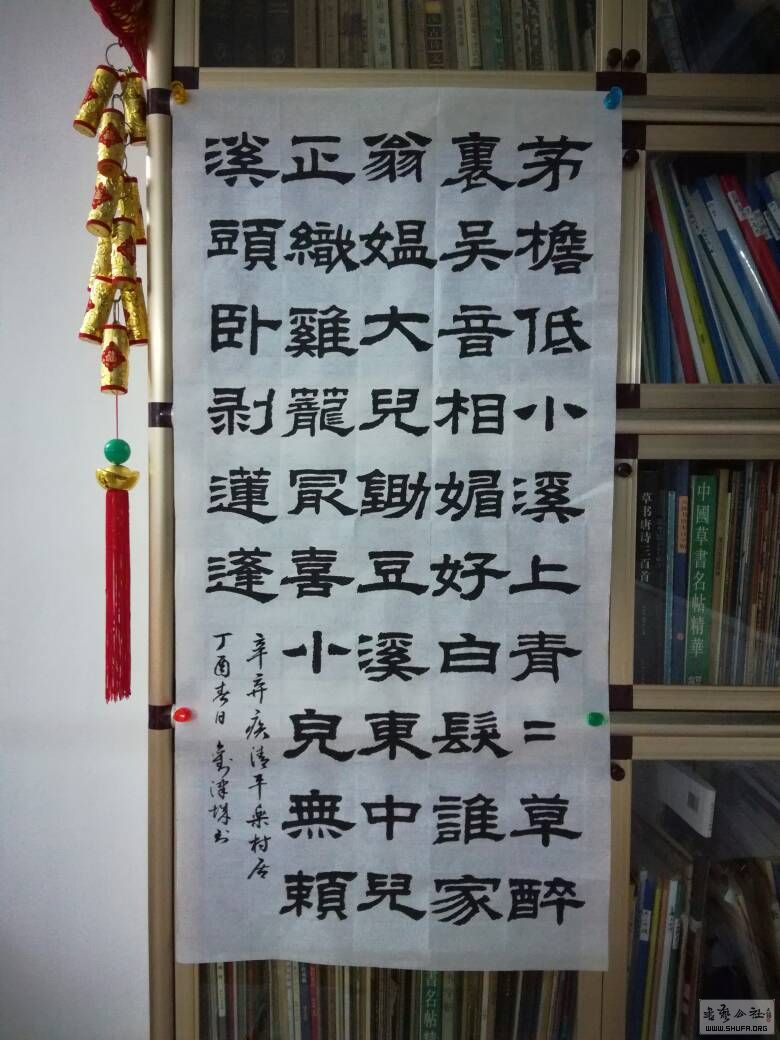 茅檐低小溪上青=草醉
裏吴音相媚好白髮誰家
翁媪大兒鋤豆溪東中兒
正織雞籠冣喜小兒無賴
溪頭卧剥蓮蓬
辛弃疾清平乐村居
丁酉春日
草书唐诗三百首
中國草書名帖精華
书艺公社
WWW.SHUFA.ORG